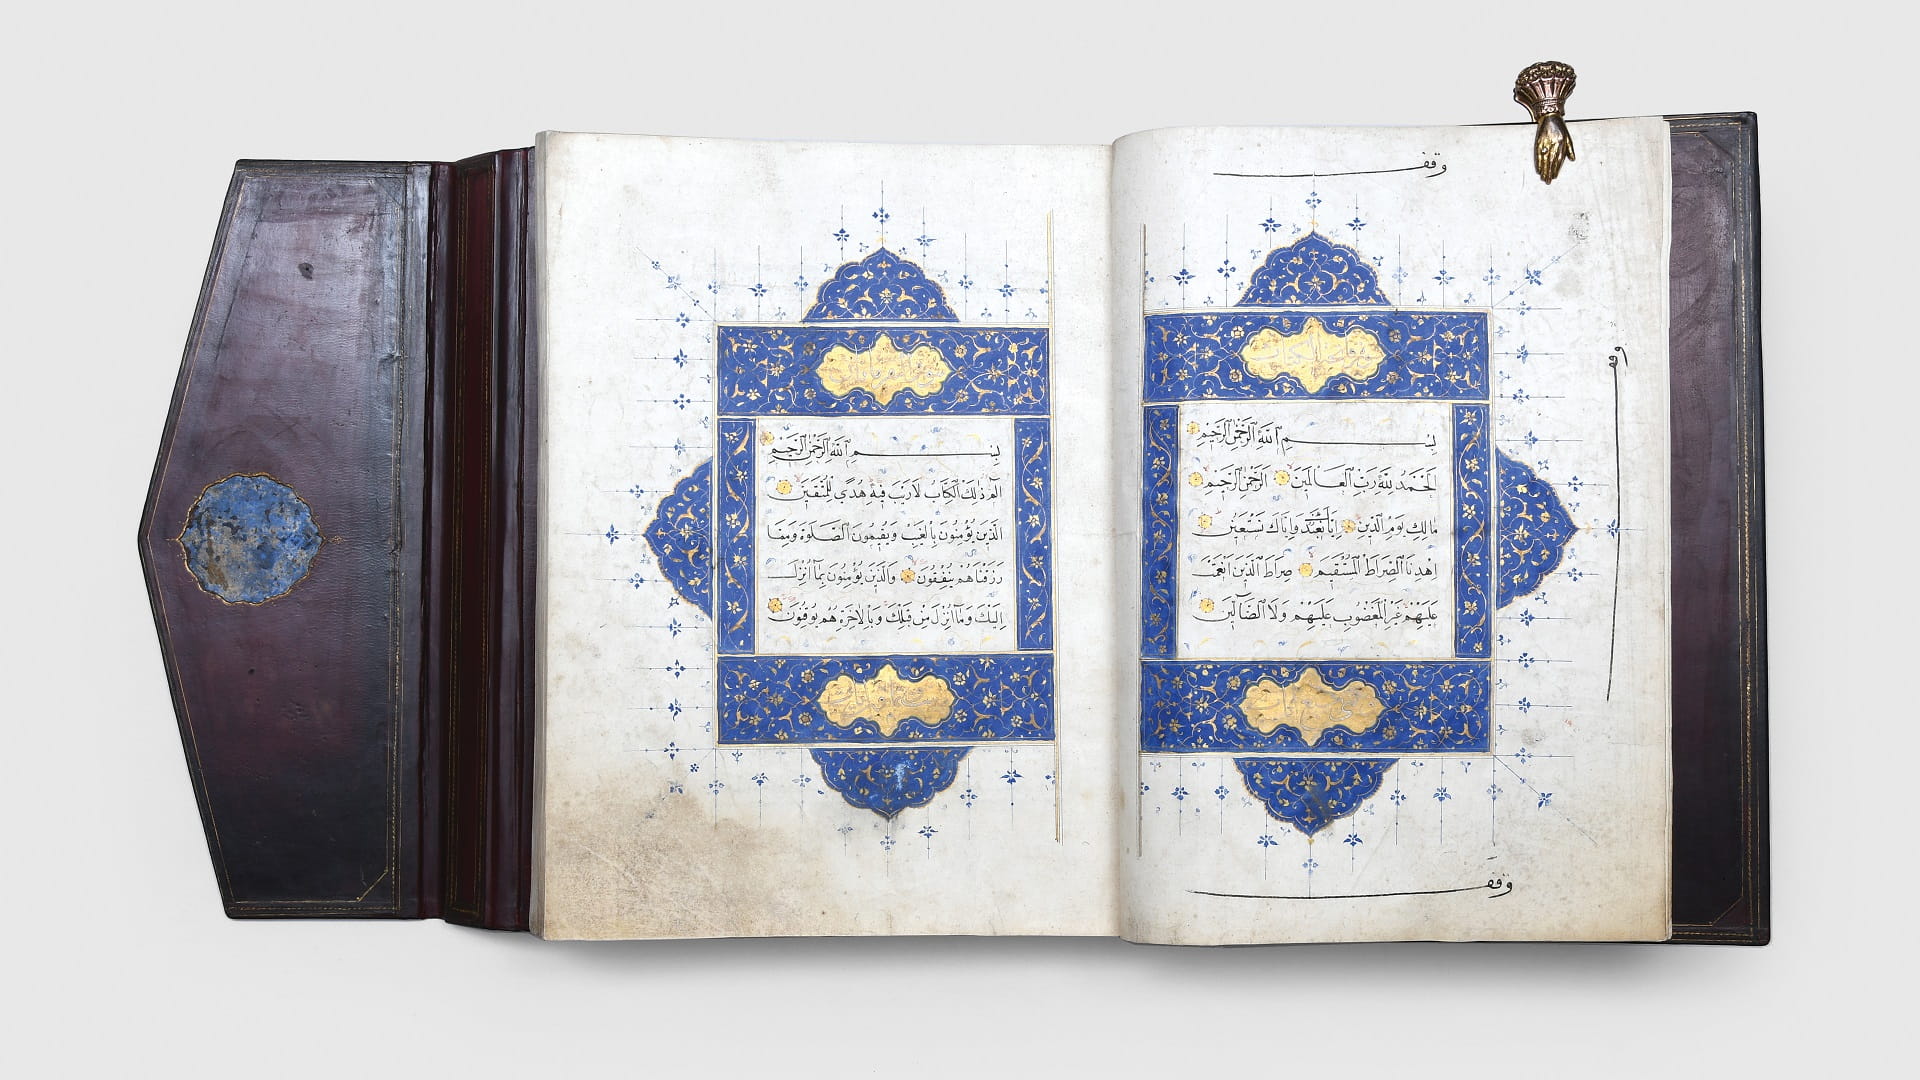 وقف
فاتحة الكتاب
بِسْمِ اللَّهِ الرَّحْمَٰنِ الرَّحِيمِ
اَلْحَمْدُ لِلَّهِ رَبِّ الْعَالَمِينَ الرَّحْمَٰنِ الرَّحِيمِ
مَالِكِ يَوْمِ الدِّينِ اِيَّاكَ نَعْبُدُ وَاِيَّاكَ نَسْتَعِينُ
اِهْدِنَا الصِّرَاطَ الْمُسْتَقِيمَ صِرَاطَ الَّذِينَ اَنْعَمْتَ
عَلَيْهِمْ غَيْرِ الْمَغْضُوبِ عَلَيْهِمْ وَلَا الضَّالِّينَ
وقف
وقف
بِسْمِ اللَّهِ الرَّحْمَٰنِ الرَّحِيمِ
الٓمٓ ذَٰلِكَ الْكِتَابُ لَا رَيْبَ فِيهِ هُدًى لِلْمُتَّقِينَ
الَّذِينَ يُؤْمِنُونَ بِالْغَيْبِ وَيُقِيمُونَ الصَّلٰوةَ وَمِمَّا
رَزَقْنَاهُمْ يُنْفِقُونَ وَالَّذِينَ يُؤْمِنُونَ بِمَا اُنْزِلَ
اِلَيْكَ وَمَا اُنْزِلَ مِنْ قَبْلِكَ وَبِالْاٰخِرَةِ هُمْ يُوقِنُونَ